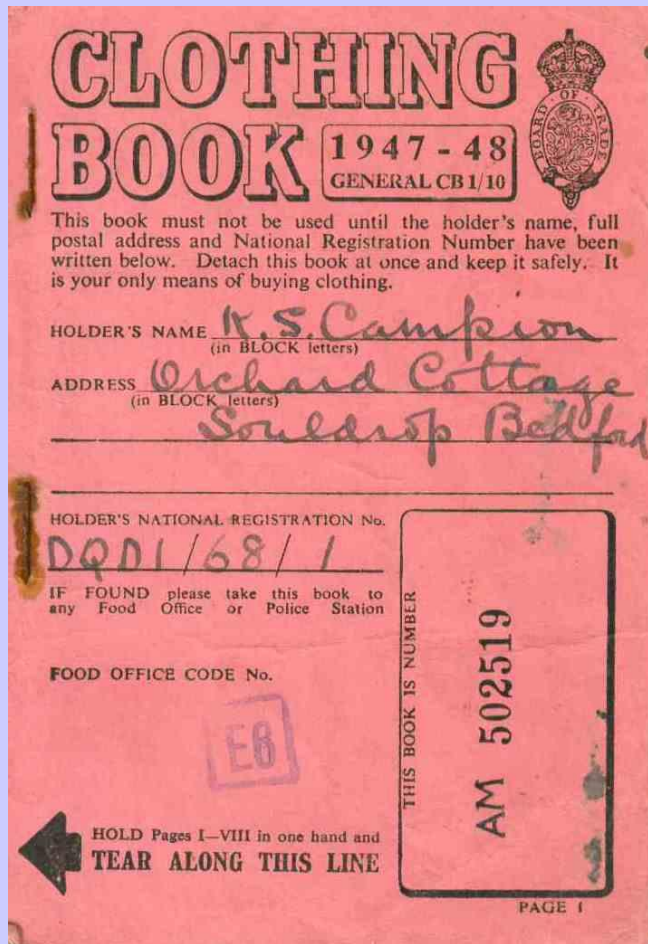 CLOTHING
BOOK
1947 - 48
GENERAL CB 1/10
BOARD · OF · TRADE
This book must not be used until the holder's name, full
postal address and National Registration Number have been
written below. Detach this book at once and keep it safely. It
is your only means of buying clothing.
HOLDER'S NAME K. S. Campion
(in BLOCK letters)
ADDRESS Orchard Cottage
(in BLOCK letters)
Souldrop Bedford
HOLDER'S NATIONAL REGISTRATION No.
DQD1/68/1
IF FOUND please take this book to
any Food Office or Police Station
FOOD OFFICE CODE No.
E6
THIS BOOK IS NUMBER
AM 502519
HOLD Pages I—VIII in one hand and
TEAR ALONG THIS LINE
PAGE I